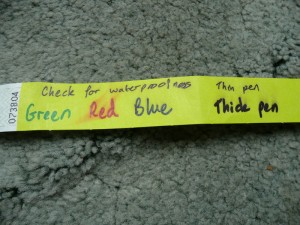 Check for waterproofness Thin pen
Green Red Blue Thick pen
073804